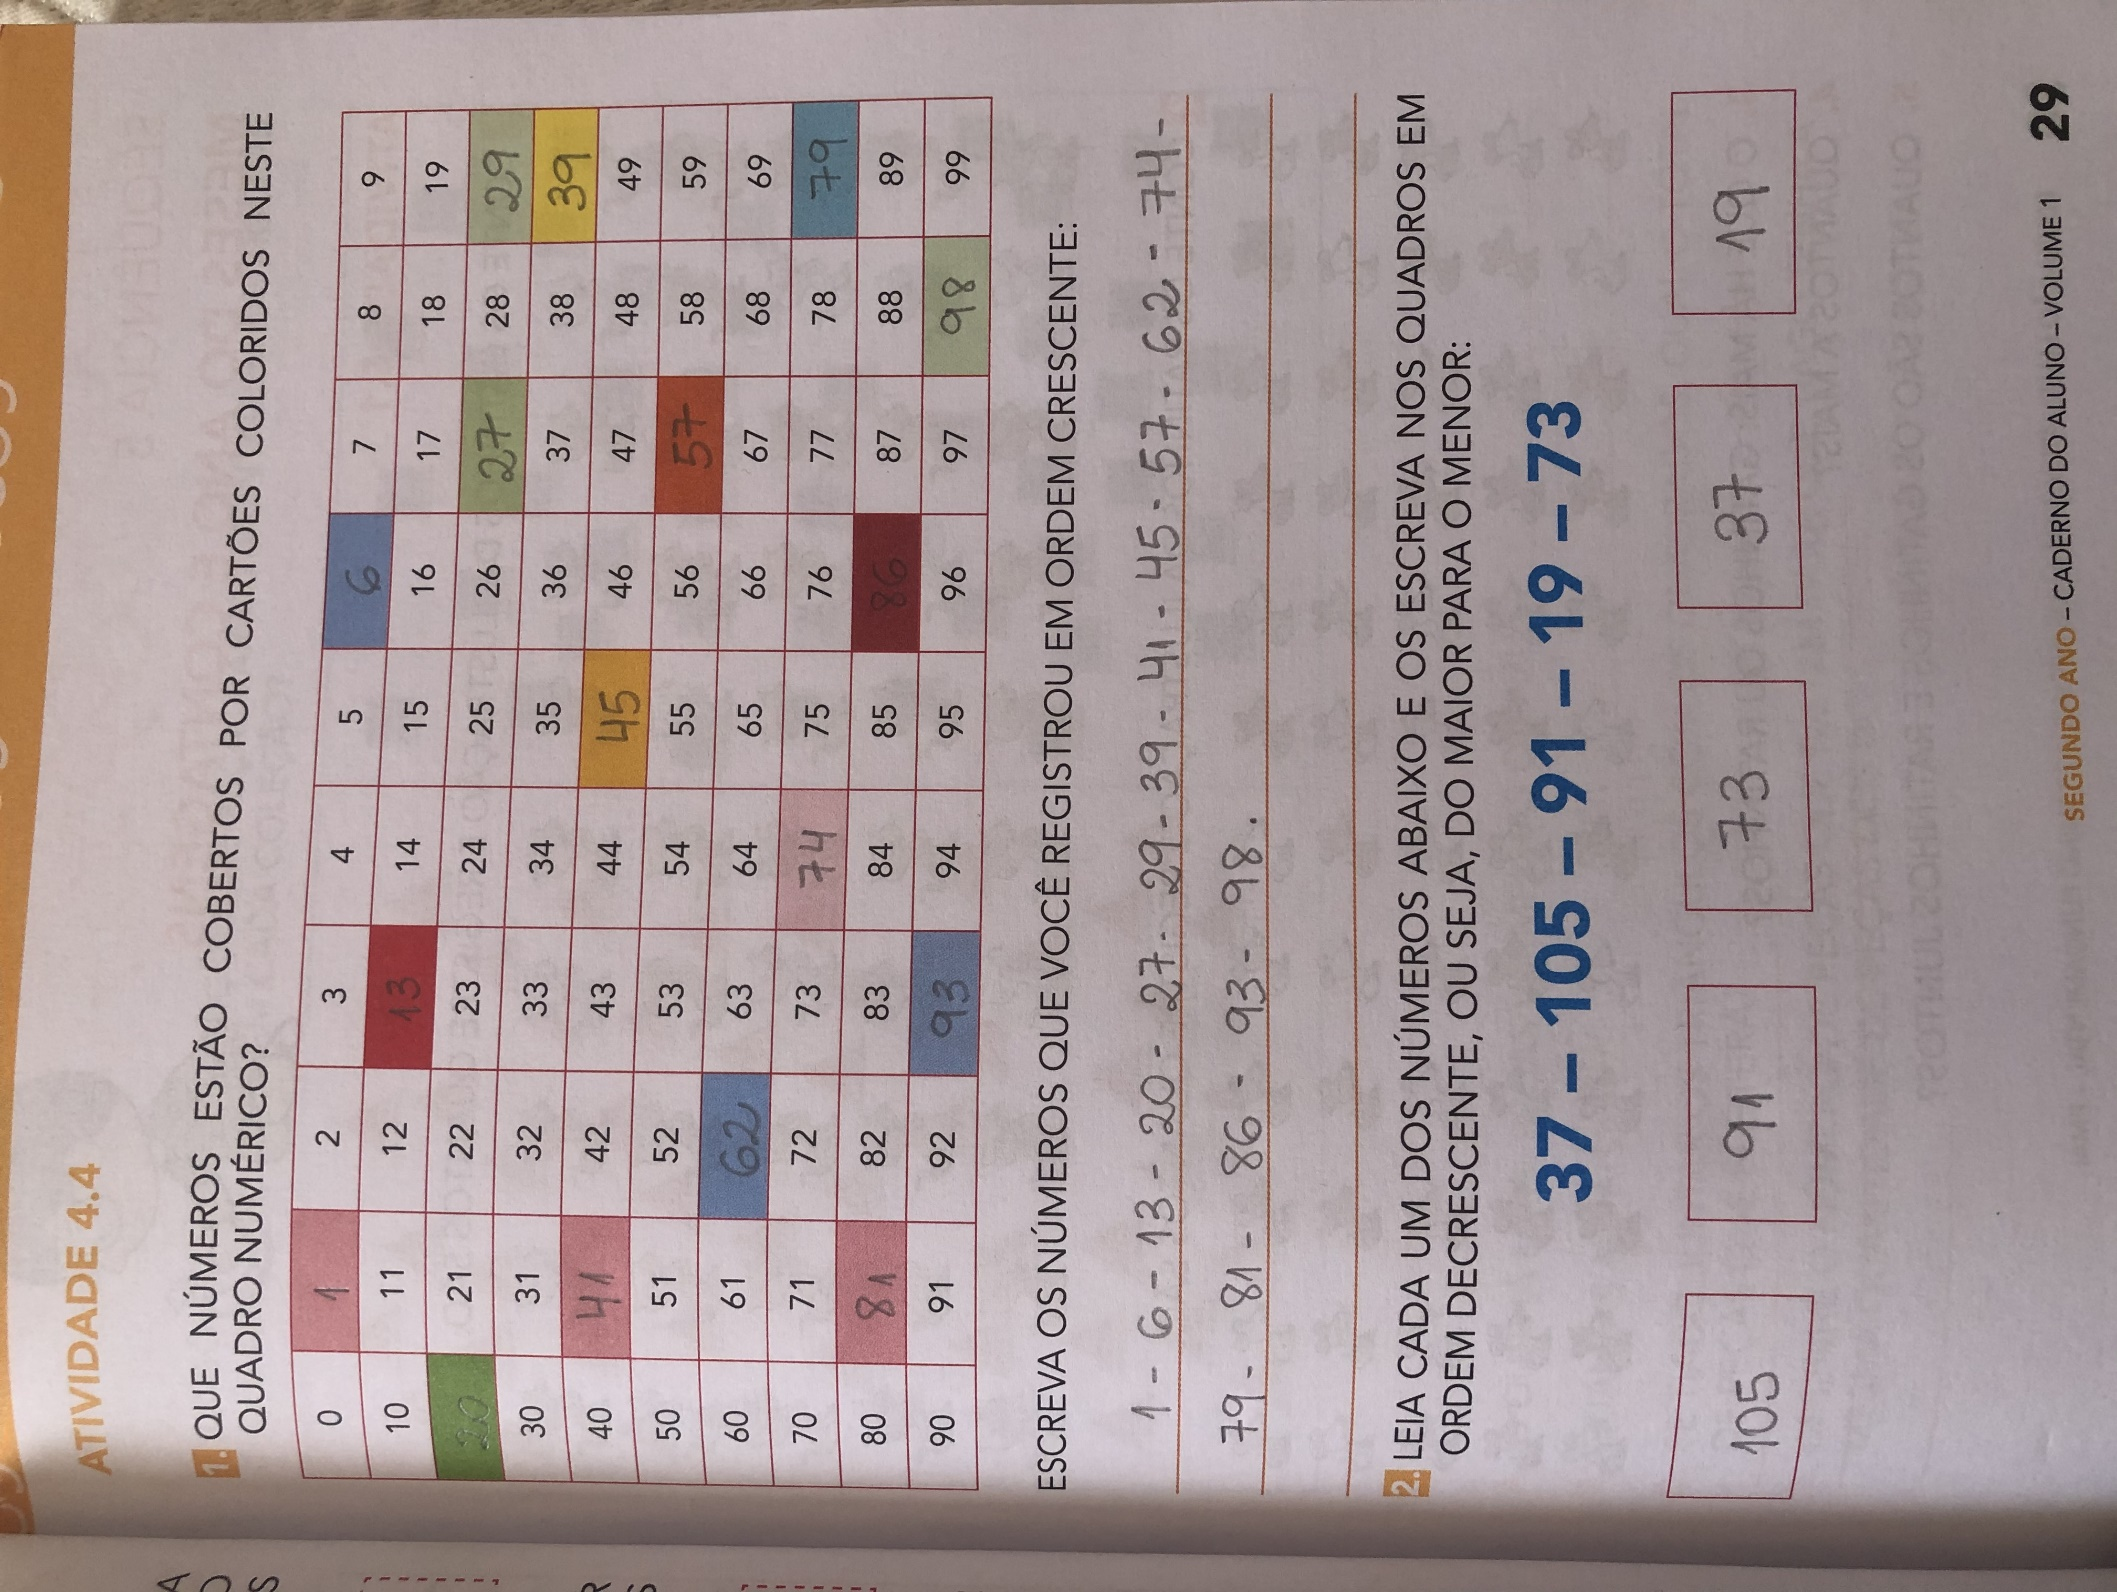 ATIVIDADE 4.4
1. QUE NÚMEROS ESTÃO COBERTOS POR CARTÕES COLORIDOS NESTE
QUADRO NUMÉRICO?
0 1 2 3 4 5 6 7 8 9
10 11 12 13 14 15 16 17 18 19
20 21 22 23 24 25 26 27 28 29
30 31 32 33 34 35 36 37 38 39
40 41 42 43 44 45 46 47 48 49
50 51 52 53 54 55 56 57 58 59
60 61 62 63 64 65 66 67 68 69
70 71 72 73 74 75 76 77 78 79
80 81 82 83 84 85 86 87 88 89
90 91 92 93 94 95 96 97 98 99
ESCREVA OS NÚMEROS QUE VOCÊ REGISTROU EM ORDEM CRESCENTE:
1 - 6 - 13 - 20 - 27 - 29 - 39 - 41 - 45 - 57 - 62 - 74 -
79 - 81 - 86 - 93 - 98.
2. LEIA CADA UM DOS NÚMEROS ABAIXO E OS ESCREVA NOS QUADROS EM
ORDEM DECRESCENTE, OU SEJA, DO MAIOR PARA O MENOR:
37 – 105 – 91 – 19 – 73
105 91 73 37 19
SEGUNDO ANO – CADERNO DO ALUNO – VOLUME 1 29